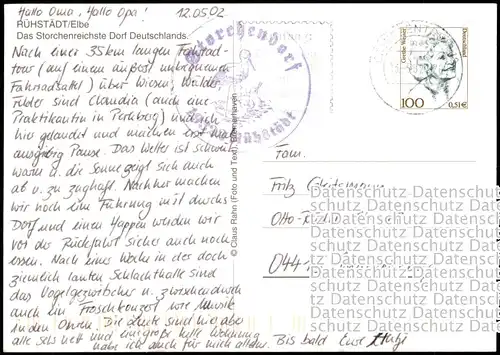 Hallo Oma, Hallo Opa! 12.05.02
RÜHSTÄDT/Elbe
Das Storchenreichste Dorf Deutschlands.
Nach einer 35km langen Fahrrad-
tour (auf einem äußerst unbequemen
Fahrradsattel) über Wiesen, Wälder,
Felder sind Claudia (auch eine
Praktikantin in Perleberg) und ich
hier gelandet und machen erst mal
ausgiebig Pause. Das Wetter ist schwül
warm u. die Sonne zeigt sich auch
ab u. zu zaghaft. Nachher machen
wir noch eine Führung mit durchs
Dorf und einen Happen werden wir
vor der Rückfahrt sicher auch noch
essen. Nach einer Woche in der doch
ziemlich lauten Schlachthalle sind
das Vogelgezwitscher u. zwischendurch
auch ein Froschkonzert wie Musik
in den Ohren. Die Leute sind hier aber
alle sehr nett und eine große tolle Wohnung
habe ich auch für mich allein. Bis bald Eure
Storchendorf
Rühstädt
© Claus Rahn (Foto und Text), Bremerhaven
Grethe Weiser
Deutschland
100 0,51 €
Fam.
Fritz
Otto-
044
Datenschutz Datenschutz
Datenschutz Datenschutz
Datenschutz Datenschutz
Datenschutz Datenschutz
Datenschutz Datenschutz
Datenschutz Datenschutz
Datenschutz Datenschutz
Datenschutz Datenschutz